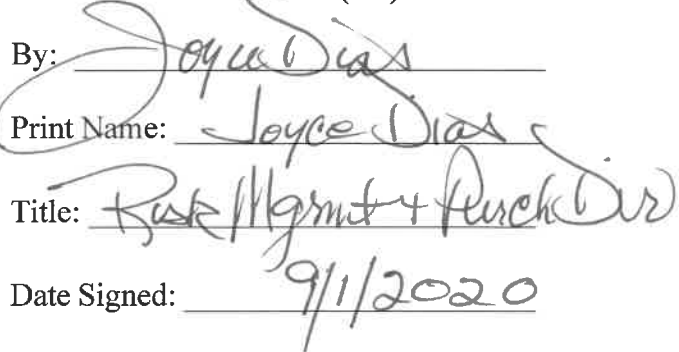 By: Joyce Dias
Print Name: Joyce Dias
Title: Risk Mgmt + Purch Dir
Date Signed: 9/1/2020